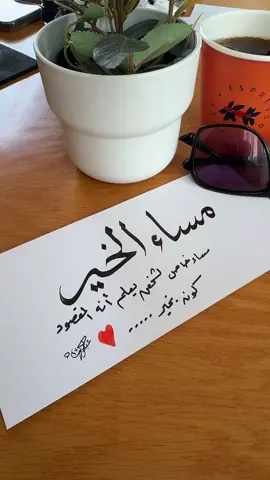 ESPRESSO
مساء الخير
مساء خاص لشخص يعلم أنه المقصود
كونه بخير .....